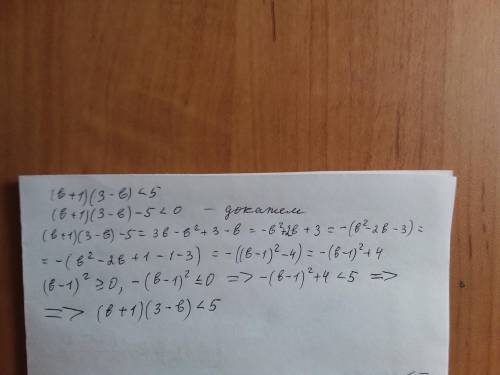 (в+1)(3-в)<5
(в+1)(3-в)-5<0 - докажем
(в+1)(3-в)-5=3в-в²+3-в=-в²+2в+3=-(в²-2в-3)=
=-(в²-2в+1-1-3)=-((в-1)²-4)=-(в-1)²+4
(в-1)²≥0, -(в-1)²≤0 => -(в-1)²+4<5 =>
=> (в+1)(3-в)<5